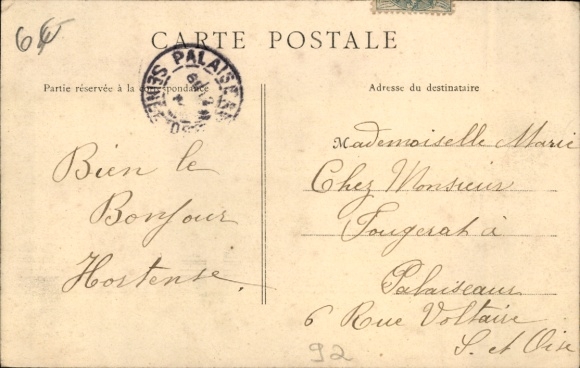 6
CARTE POSTALE
PALAISEAU
SEINE
Partie réservée à la correspondance
Adresse du destinataire
Bien le
Bonjour
Hortense.
Mademoiselle Marie
Chez Monsieur
Fougerat à
Palaiseau
6 Rue Voltaire
S. et Oise
92